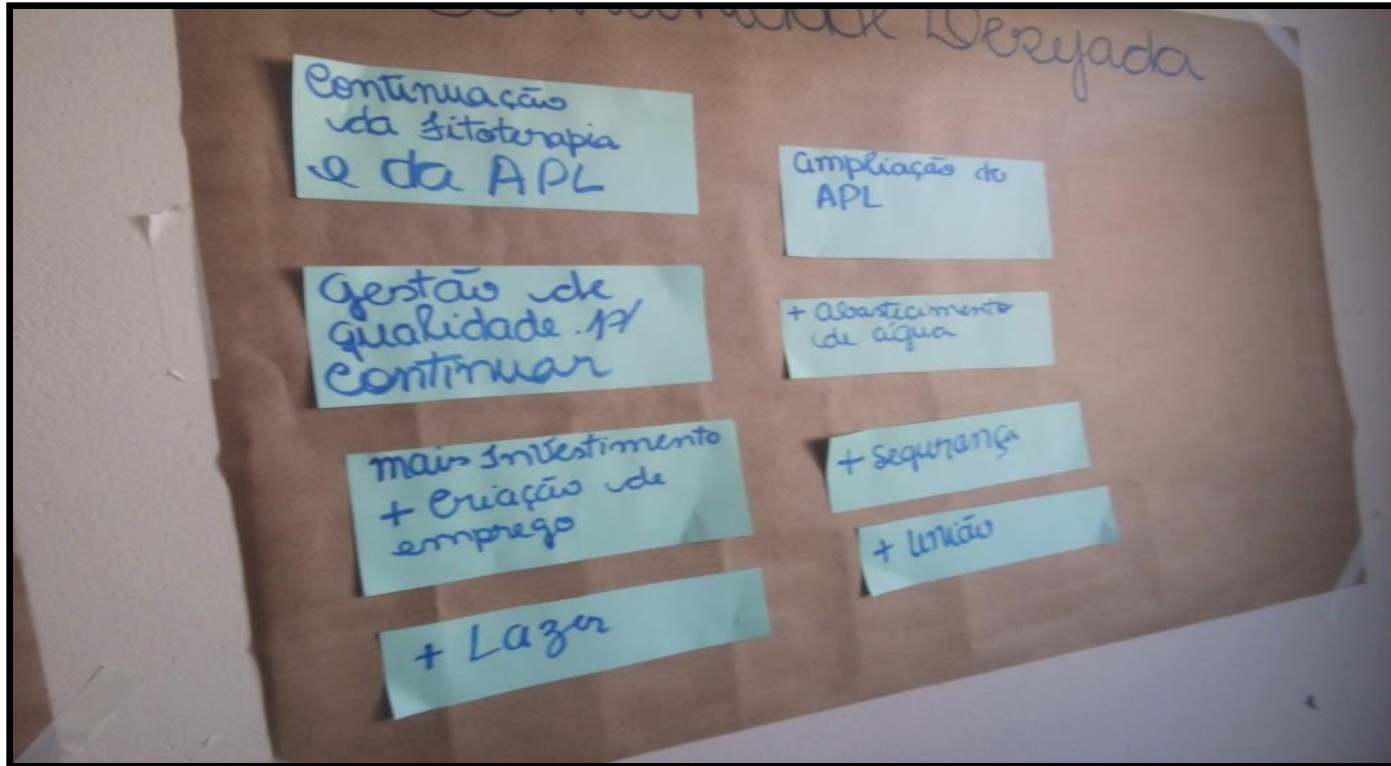 Comunidade Dezejada
Continuação
da fitoterapia
e da APL
Gestão de
qualidade p/
continuar
mais Investimento
+ Criação de
emprego
+ Lazer
ampliação do
APL
+ abastecimento
de água
+ segurança
+ união